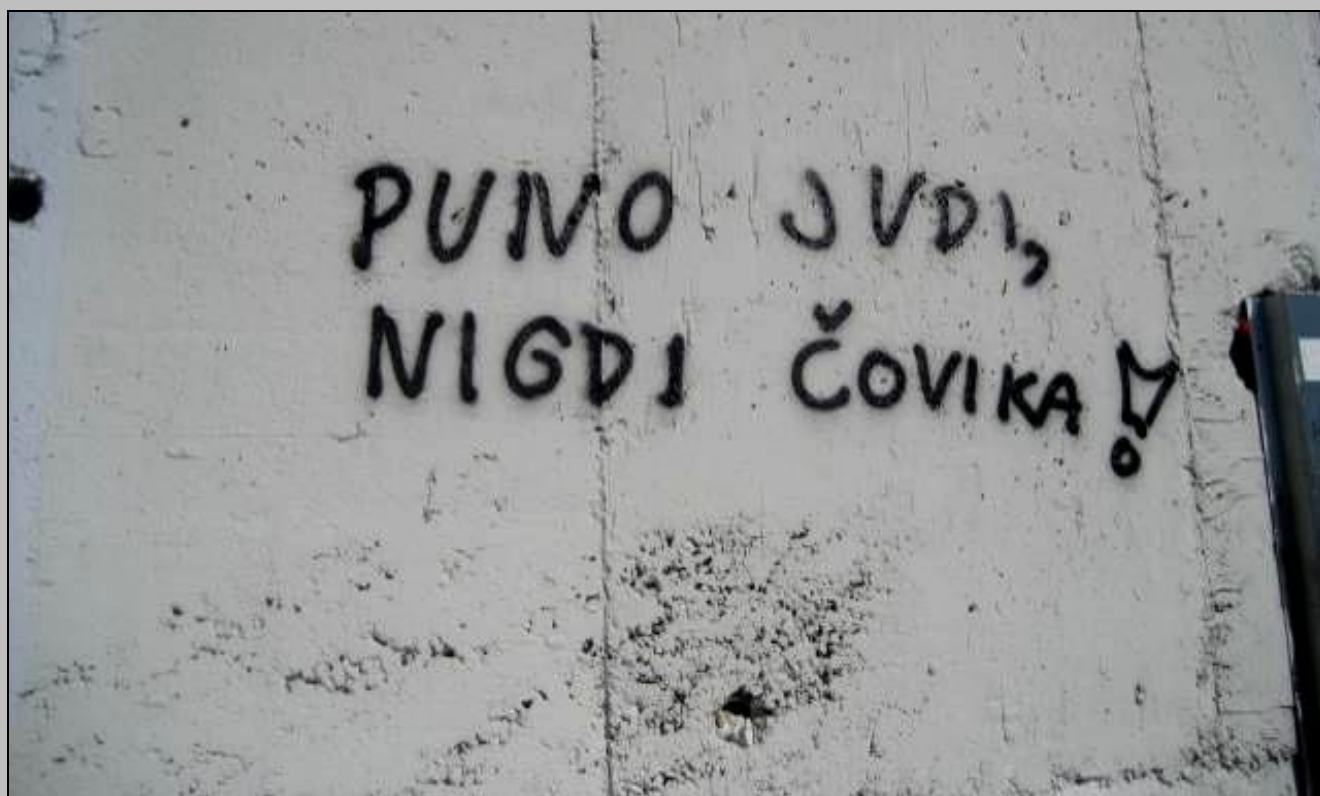 PUNO JUDI,
NIGDI ČOVIKA!